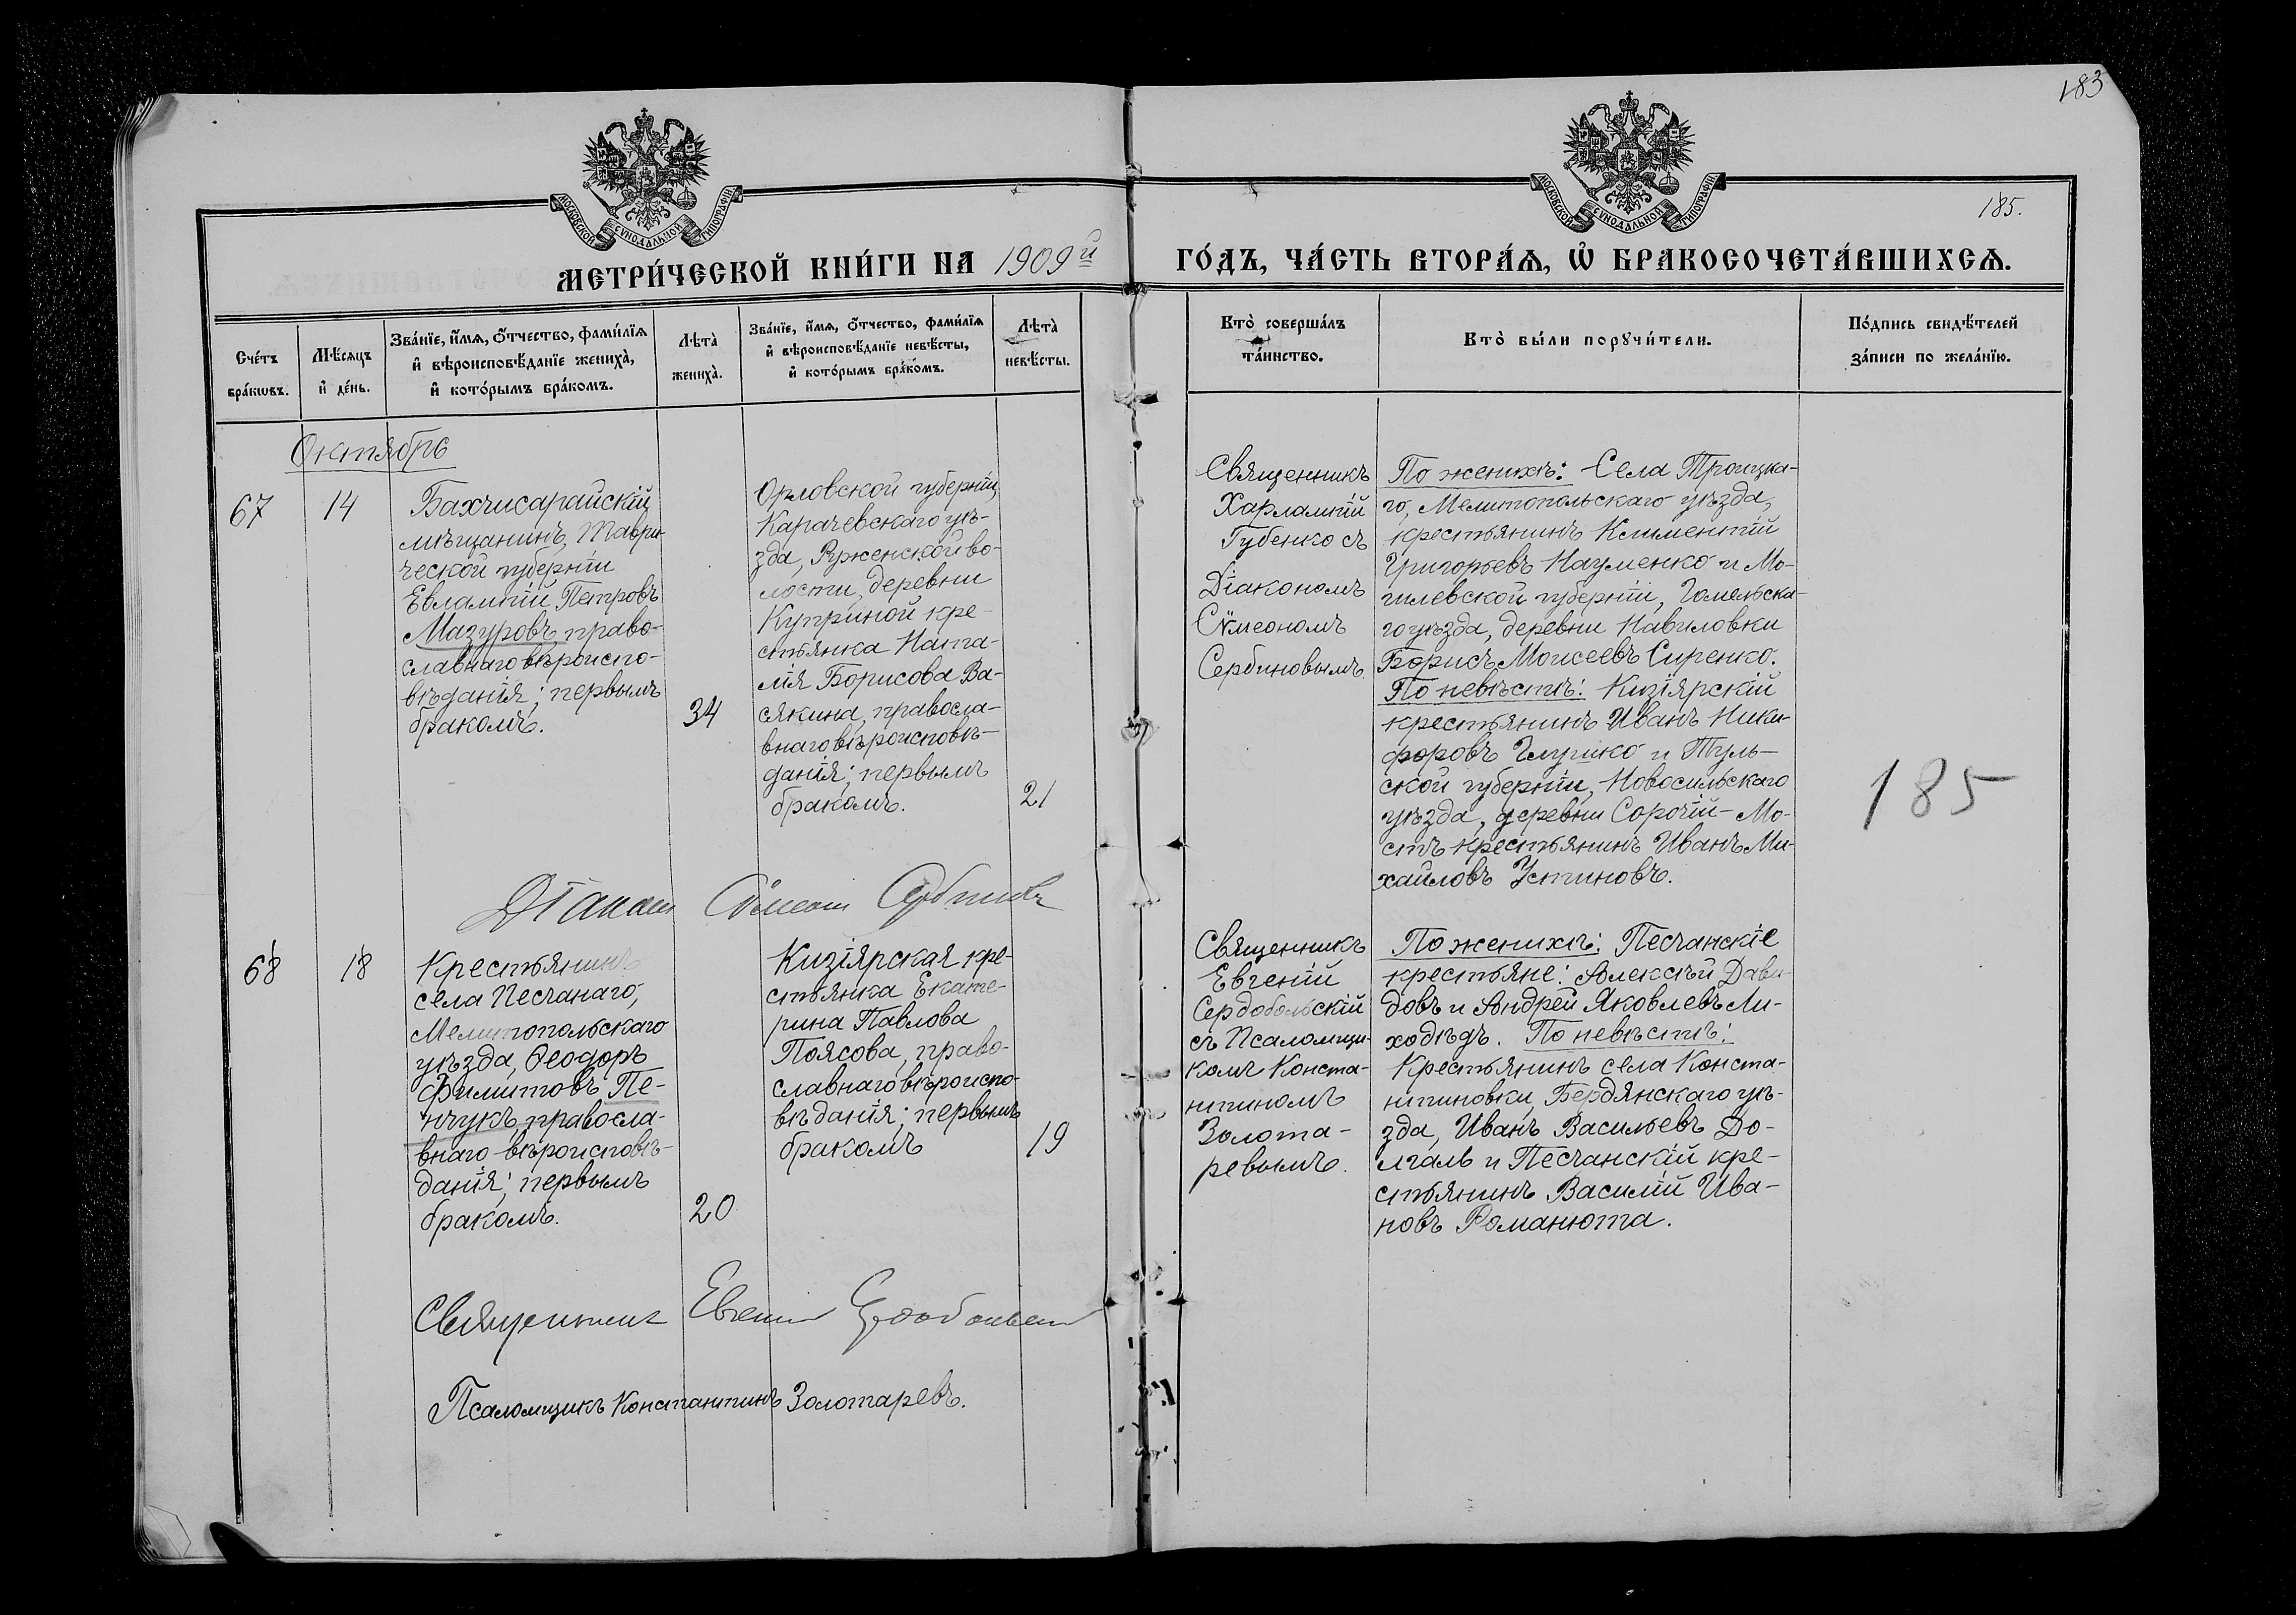 183
МОСКОВСКОЙ СѴНОДАЛЬНОЙ ТИПОГРАФІИ
МОСКОВСКОЙ СѴНОДАЛЬНОЙ ТИПОГРАФІИ
185.
МЕТРИ́ЧЕСКОЙ КНИ́ГИ НА 1909й ГО́ДЪ, ЧА́СТЬ ВТОРА́Ѧ, Ѡ҆ БРАКОСОЧЕТА́ВШИХСѦ.
Сче́тъ
бра́кѡвъ.
Мѣ́сяцъ
и҆ де́нь.
Зва́нїе, и҆́мѧ, ѻ҆́тчество, фами́лїѧ
и҆ вѣроисповѣ́данїе жениха̀,
и҆ кото́рымъ бра́комъ.
Лѣ̀та
жениха̀.
Зва́нїе, и҆́мѧ, ѻ҆́тчество, фами́лїѧ
и҆ вѣроисповѣ́данїе невѣ́сты,
и҆ кото́рымъ бра́комъ.
Лѣ̀та
невѣ́сты.
Кто̀ соверша́лъ
та́инство.
Кто̀ бы́ли порꙋчи́тели.
По́дпись свидѣ́телей
за́писи по жела́нїю.
Октябрь
67
14
Бахчисарайскій
мѣщанинъ, Таври-
ческой губерніи
Евлампій Петровъ
Мазуровъ, право-
славнаго вѣроиспо-
вѣданія; первымъ
бракомъ.
34
Орловской губерніи,
Карачевскаго уѣ-
зда, Рженской во-
лости, деревни
Куприной кре-
стьянка Ната-
лія Борисова Ва-
сякина, правосла-
внаго вѣроисповѣ-
данія; первымъ
бракомъ.
21
Священникъ
Харлампій
Губенко съ
Діакономъ
Сѵмеономъ
Сербиновымъ.
По женихѣ: Села Троицка-
го, Мелитопольскаго уѣзда,
крестьянинъ Климентій
Григорьевъ Науменко и Мо-
гилевской губерніи, Гомельска-
го уѣзда, деревни Навиловки
Борисъ Моисеевъ Сиренко.
По невѣстѣ: Кизіярскій
крестьянинъ Иванъ Ники-
форовъ Глушко и Туль-
ской губерніи, Новосильскаго
уѣзда, деревни Сорочій-Мо-
стъ крестьянинъ Иванъ Ми-
хайловъ Устиновъ.
185
Діаконъ Сѵмеонъ Сербиновъ
68
18
Крестьянинъ
села Песчанаго,
Мелитопольскаго
уѣзда, Ѳеодоръ
Филиповъ Пе-
нчукъ, правосла-
внаго вѣроисповѣ-
данія; первымъ
бракомъ.
20
Кизіярская кре-
стьянка Екате-
рина Павлова
Поясова, право-
славнаго вѣроиспо-
вѣданія; первымъ
бракомъ
19
Священникъ
Евгеній
Сердобольскій
съ Псаломщи-
комъ Конста-
нтиномъ
Золота-
ревымъ.
По женихѣ: Песчанскіе
крестьяне: Алексѣй Дави-
довъ и Андрей Яковлевъ Ли-
ходѣдъ. По невѣстѣ:
Крестьянинъ села Конста-
нтиновки, Бердянскаго уѣ-
зда, Иванъ Васильевъ До-
лгаль и Песчанскій кре-
стьянинъ Василій Ива-
новъ Романюта.
Священникъ Евгеній Сердобольскій
Псаломщикъ Константинъ Золотаревъ.